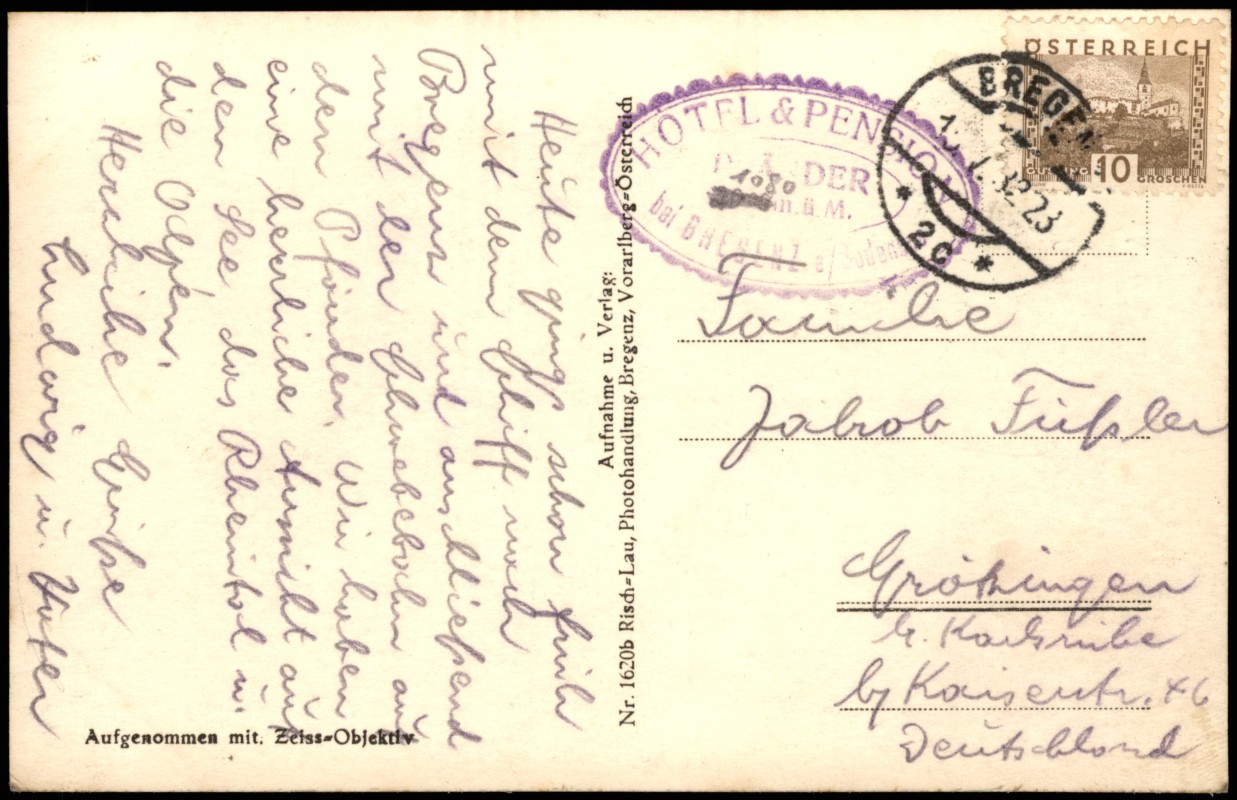 Heute ging's schon früh
mit dem Schiff nach
Bregenz und anschließend
mit der Schwebebahn auf
den Pfänder. Wir haben
eine herrliche Aussicht auf
den See, das Rheintal u.
die Alpen.
Herzliche Grüße
Ludwig u. Vater
Aufgenommen mit. Zeiss=Objektiv
Aufnahme u. Verlag:
Nr. 1620b Risch=Lau, Photohandlung, Bregenz, Vorarlberg=Österreich
HOTEL & PENSION
PFÄNDER
1080
m. ü. M.
bei BREGENZ a/Bodensee
BREGENZ
32.23
* 2c *
ÖSTERREICH
10
GROSCHEN
Familie
Jakob Füßler
Grötzingen
b. Karlsruhe
Kaiserstr. 46
Deutschland